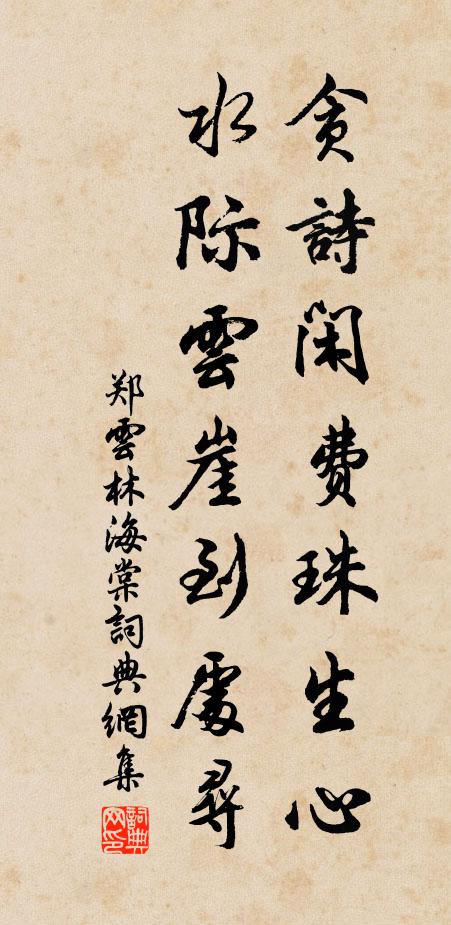 贪詩闲費珠生心
水际雲崖到處尋
郑雲林海棠詞典網集
詞典网印